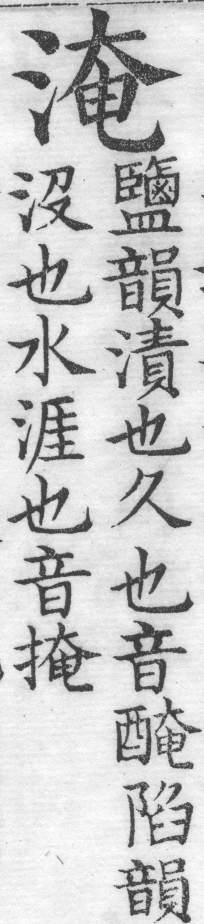 淹
鹽韻漬也久也音醃陷韻
沒也水涯也音掩